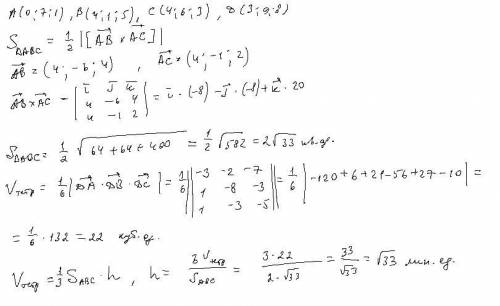 A(0;7;1), B(4;1;5), C(4;6;3), D(3;9;8)
S_{ΔABC} = 1/2 |[\vec{AB} × \vec{AC}]|
\vec{AB} = (4; -6; 4), \vec{AC} = (4; -1; 2)
\vec{AB} × \vec{AC} = | \vec{i} \vec{j} \vec{k} ; 4 -6 4 ; 4 -1 2 | = \vec{i}·(-8) - \vec{j}·(-8) + \vec{k}·20
S_{ΔABC} = 1/2 √(64+64+400) = 1/2 √582 = 2√33 кв.ед.
V_{тетр} = 1/6 |\vec{DA}·\vec{DB}·\vec{DC}| = 1/6 || -3 -2 -7 ; 1 -8 -3 ; 1 -3 -5 || = 1/6 |-120+6+21-56+27-10| =
= 1/6 · 132 = 22 куб.ед.
V_{тетр} = 1/3 S_{ABC}·h, h = 3V_{тетр}/S_{ABC} = 3·22/(2·√33) = 33/√33 = √33 лин.ед.